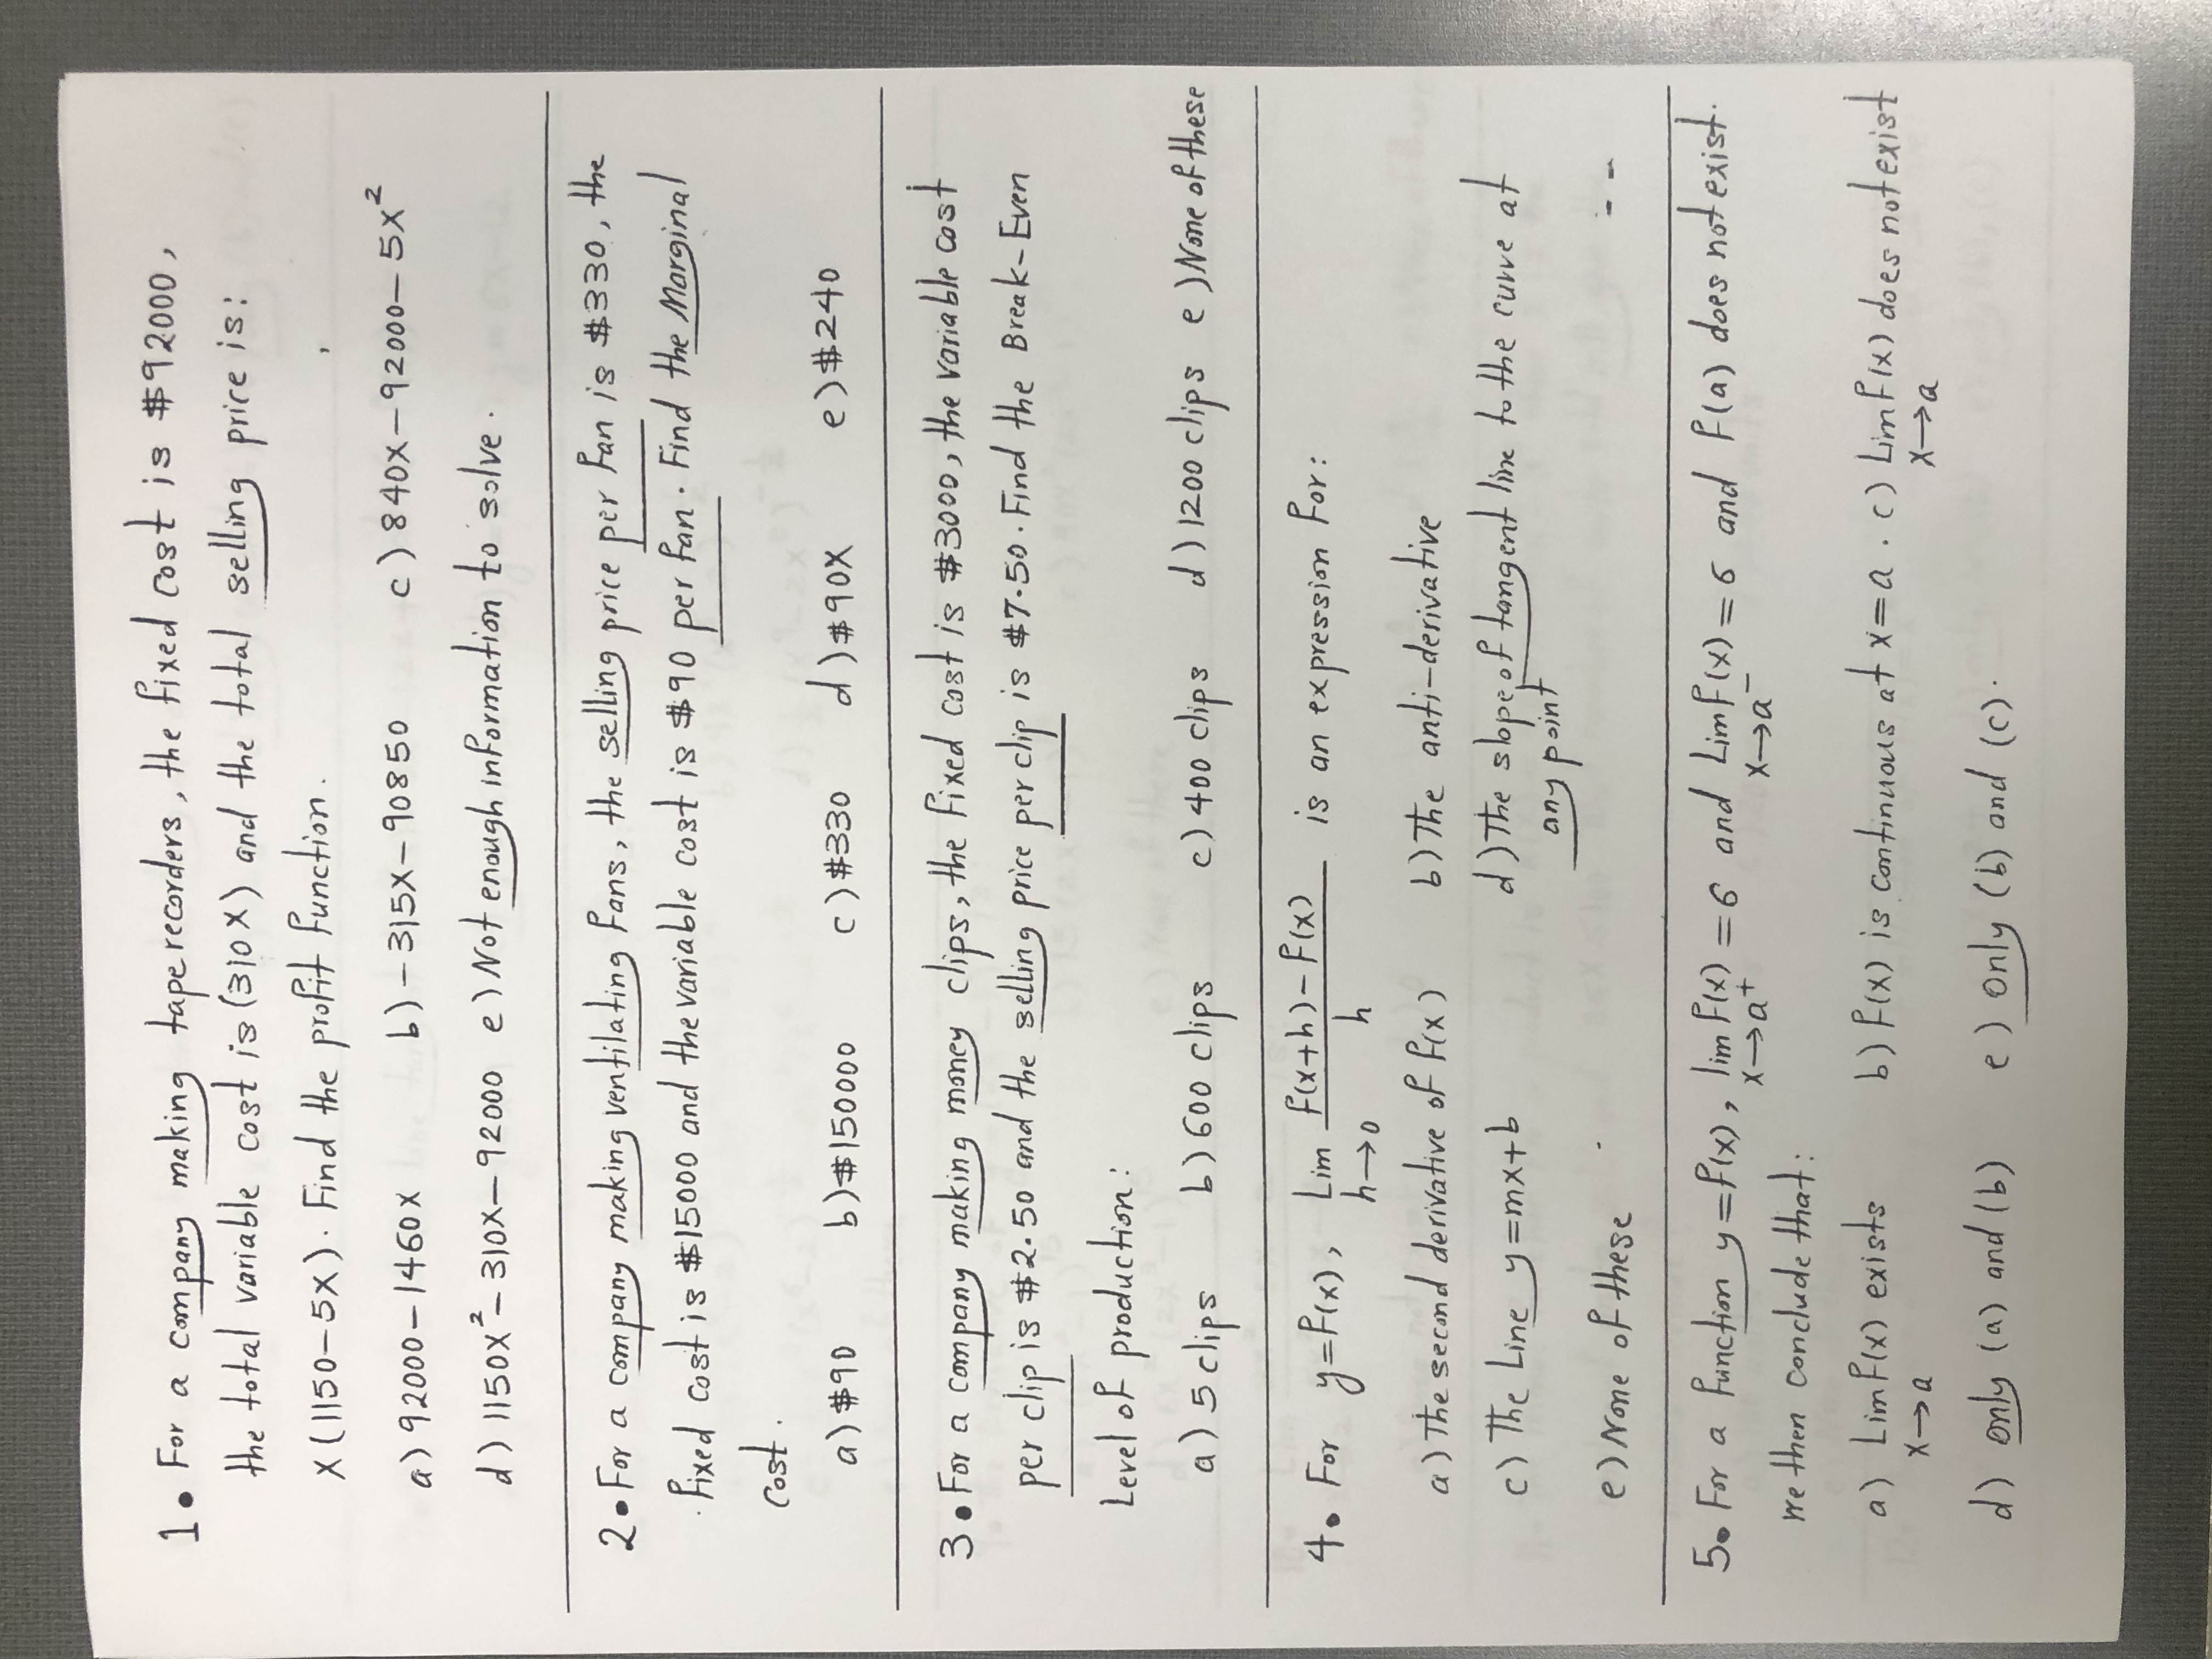 1. For a company making tape recorders, the fixed cost is $92000,
the total variable cost is (310x) and the total selling price is:
x(1150-5x). Find the profit function.
a) 92000-1460x b) -315x-90850 c) 840x-92000-5x²
d) 1150x²-310x-92000 e) Not enough information to solve.
2. For a company making ventilating fans, the selling price per fan is $330, the
fixed cost is $15000 and the variable cost is $90 per fan. Find the Marginal
cost.
a) $90 b) $150000 c) $330 d) $90x e) $240
3. For a company making money clips, the fixed cost is $3000, the variable cost
per clip is $2.50 and the selling price per clip is $7.50. Find the Break-Even
Level of production:
a) 5 clips b) 600 clips c) 400 clips d) 1200 clips e) None of these
4. For y=f(x), Lim h→0 f(x+h)-f(x) / h is an expression for:
a) The second derivative of f(x) b) The anti-derivative
c) The Line y=mx+b d) The slope of tangent line to the curve at
any point
e) None of these
5. For a function y=f(x), lim x→a⁺ f(x)=6 and Lim x→a⁻ f(x)=6 and f(a) does not exist.
we then conclude that:
a) Lim x→a f(x) exists b) f(x) is continuous at x=a. c) Lim x→a f(x) does not exist
d) only (a) and (b) e) only (b) and (c).